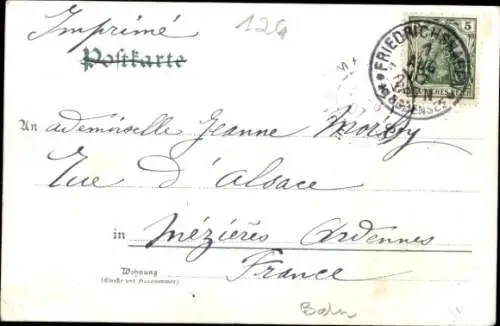 Imprimé
126
Postkarte
5
FRIEDRICHSHAFEN
1 AUG
BODENSEE
An ademoiselle Jeanne
Rue d'Alsace
in Mézières Ardennes
France
Wohnung
(Straße und Hausnummer)
Bahn